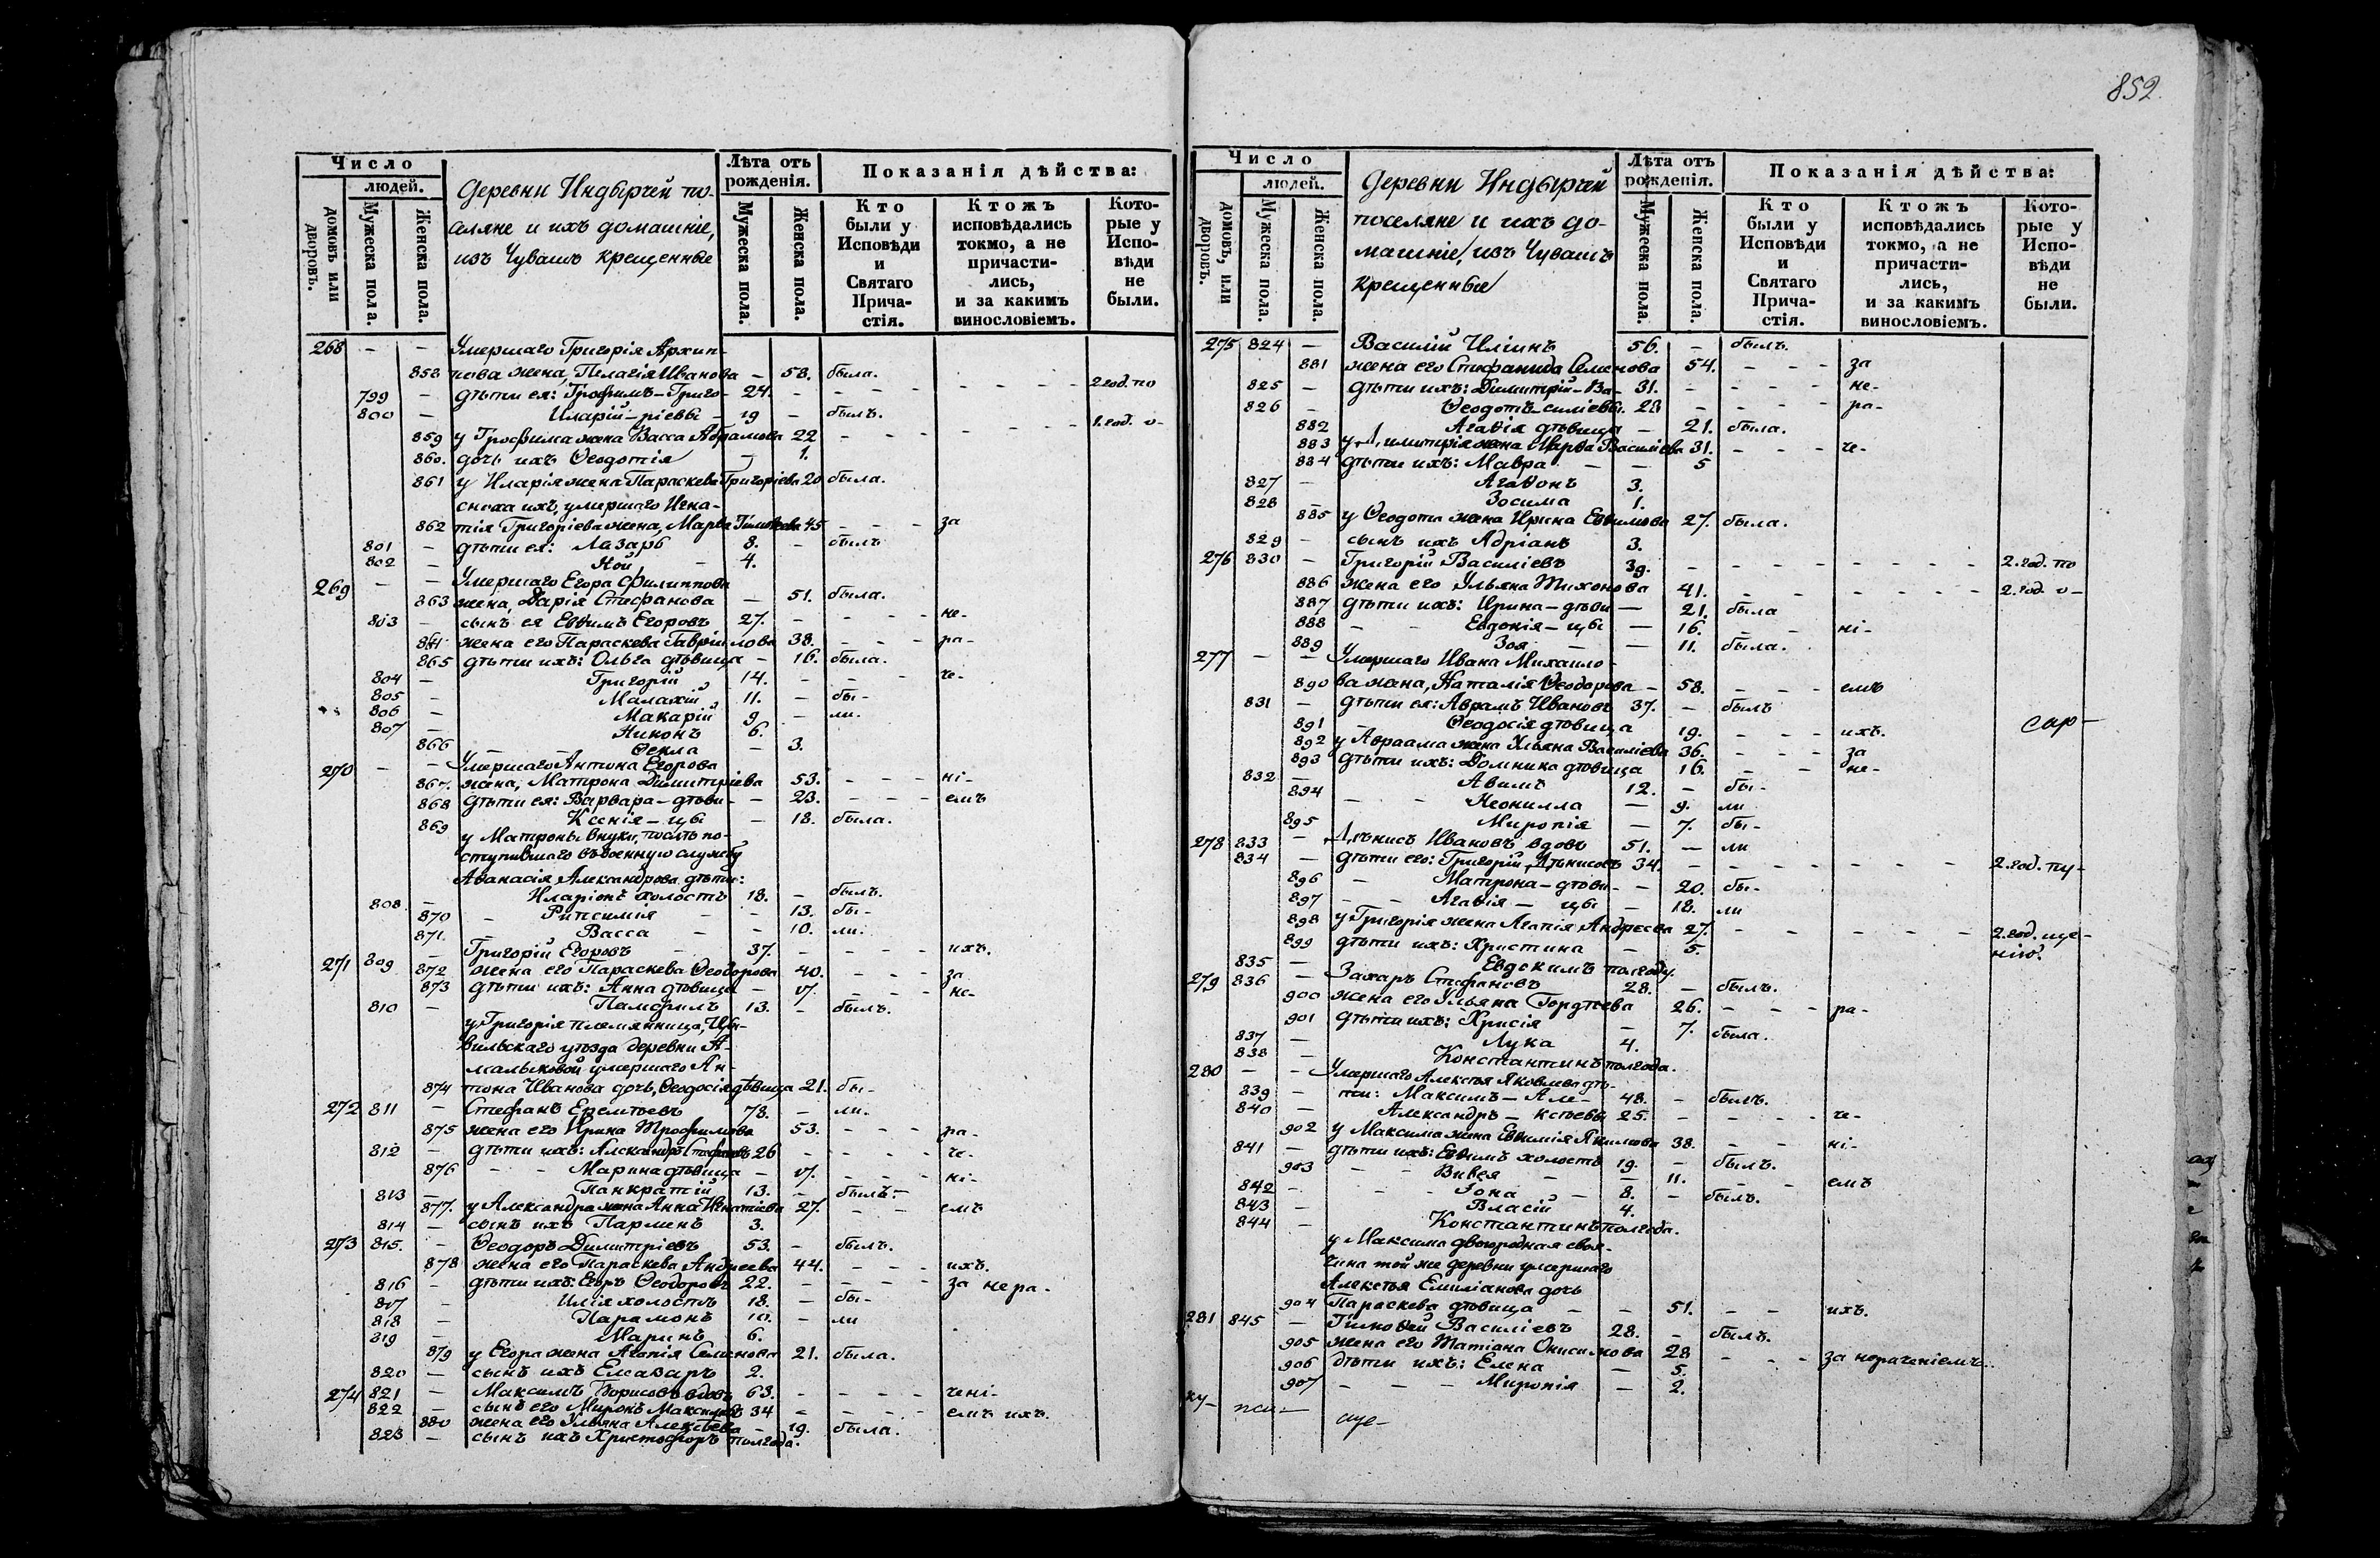 852
Число
людей.
домовъ или дворовъ.
Мужеска пола.
Женска пола.
Деревни Индырчей по-
селяне и ихъ домашніе,
изъ Чувашъ крещенные
Лѣта отъ рожденія.
Мужеска пола.
Женска пола.
Показанія дѣйства:
Кто были у Исповѣди и Святаго Прича-стія.
Ктожъ исповѣдались токмо, а не причасти-лись, и за какимъ винословіемъ.
Кото-рые у Испо-вѣди не были.
268 – – Умершаго Григорія Архип-
858 пова жена, Пелагія Иванова – 58. была.
799 – дѣти ея: Трофимъ – Григо- 24. – – – – 2 год. по
800 – Иларій – ріевы – 19 – былъ.
859 у Трофима жена Васса Абрамова 22 – – – 1. год. о-
860. дочь ихъ Ѳеодотія – 1.
861 у Иларія жена Параскева Григоріева 20 была.
сноха ихъ, умершаго Игна-
862 тія Григоріева жена, Марѳа Тимоѳеева 45 – – – за
801 – дѣти ея: Лазарь 8. – былъ
802 – Ной – 4.
269 – – Умершаго Егора Филиппова
863 жена, Дарія Стефанова – 51. была.
803 – сынъ ея Евѳимъ Егоровъ 27. – – – не-
864 жена его Параскева Гавріилова 38. – – – ра-
865 дѣти ихъ: Ольга дѣвица – 16. была.
804 – Григорій 14. – – – че-
805 – Малахій 11. – бы-
806 – Макарій 9 – ли.
807 – Никонъ 6.
866 – Ѳекла – 3.
270 – – Умершаго Антона Егорова
867. жена, Матрона Димитріева 53. – – – ні-
868 дѣти ея: Варвара – дѣви- – 23. – – – емъ
869 Ксенія – цы – 18. была.
у Матроны внуки, послѣ по-
ступившаго въ военную службу
Аѳанасія Александрова дѣти:
808 – Иларіонъ холостъ 18. – былъ.
870 – Рипсимія – – 13. бы-
871. – Васса – – 10. ли.
271 809 – Григорій Егоровъ – 37. – – – ихъ.
872 жена его Параскева Ѳеодорова 40. – – – за
873 дѣти ихъ: Анна дѣвица – 17. – – – не-
810 – Памфилъ 13. – былъ.
у Григорія племянница, Ци-
вильскаго уѣзда деревни А-
малыковой умершаго Ан-
874 тона Иванова дочь, Ѳеодосія дѣвица 21. бы-
272 811 – Стефанъ Еремѣевъ 78. – ли.
875 жена его Ирина Трофимова 53. – – – ра-
812 – дѣти ихъ: Александръ Стефановъ 26 – – – че-
876 – – Марина дѣвица – 17. – – – ні-
813 – Панкратій 13. – былъ. –
877. у Александра жена Анна Игнатіева 27. – – емъ
814 – сынъ ихъ Парменъ 3.
273 815. – Ѳеодоръ Димитріевъ 53. – былъ.
878 жена его Параскева Андреева 44. – – – ихъ.
816 – дѣти ихъ: Егоръ Ѳеодоровъ 22. – – – – за нера-
817 – Илія холостъ 18. – бы-
818 – Парамонъ 10. – ли
819 – Маринъ 6.
879 у Егора жена Агапія Семенова 21. была.
820 – сынъ ихъ Елеазаръ 2.
274 821 – Максимъ Борисовъ вдовъ 63. – – – – чені-
822 – сынъ его Миронъ Максимовъ 34 – – – – емъ ихъ.
880 жена его Ульяна Алексѣева – 19. была.
823 – сынъ ихъ Христофоръ полгода.
Число
людей.
домовъ, или дворовъ.
Мужеска пола.
Женска пола.
Деревни Индырчей
поселяне и ихъ до-
машніе, изъ Чувашъ
крещенные
Лѣта отъ рожденія.
Мужеска пола.
Женска пола.
Показанія дѣйства:
Кто были у Исповѣди и Святаго Прича-стія.
Ктожъ исповѣдались токмо, а не причасти-лись, и за какимъ винословіемъ.
Кото-рые у Испо-вѣди не были.
275 824 – Василій Иліинъ 56. – былъ.
881 жена его Стефанида Семенова 54. – – – за
825 – дѣти ихъ: Димитрій – Ва- 31. – – – – не-
826 – Ѳеодотъ – силіевы. 28 – – – – ра-
882 Агаѳія дѣвица – 21. была.
883 у Димитрія жена Марѳа Василіева 31. – – – че-
884 дѣти ихъ: Мавра – – 5
827 – Агаѳонъ 3.
828 – Зосима 1.
885 у Ѳеодота жена Ирина Евѳимова 27. была.
829 – сынъ ихъ Адріанъ 3.
276 830 – Григорій Василіевъ 39. – – – – – – – 2. год. по
886 жена его Ульяна Тихонова 41. – – – – – – 2. год. о-
887 дѣти ихъ: Ирина – дѣви – 21. была
888 – – Евдокія – цы – 16. – – ні-
889 Зоя – – 11. была.
277 – – Умершаго Ивана Михайло-
890 ва жена, Наталія Ѳеодорова – 58. – – – емъ
831 – дѣти ея: Аврамъ Ивановъ 37. – былъ
891 – Ѳеодосія дѣвица 19. – – – ихъ.
892 у Авраама жена Ульяна Василіева 36. – – – за
893 дѣти ихъ: Домника дѣвица 16. – – не-
832 – Авимъ 12. – бы-
894 – – Неонилла – 9. ли
895 Миропія – 7. бы-
278 833 – Дѣнисъ Ивановъ вдовъ 51. – ли
834 – дѣти его: Григорій Дѣнисовъ 34. – – – – – – – 2. год. пу-
896 – Матрона – дѣви- – 20. бы-
897 – – Агаѳія – цы – 18. ли
898 у Григорія жена Агапія Андреева 27. – – – – – – 2. год. ще-
899 дѣти ихъ: Христина – 5. нію.
835 – Евдокимъ полгода
279 836 – Захаръ Стефановъ 28. – былъ.
900 жена его Ульяна Гордѣева 26. – – – ра-
901 дѣти ихъ: Хрисія – 7. была.
837 – Лука 4.
838 – Константинъ полгода.
280 – – Умершаго Алексѣя Яковлева дѣ-
839 – ти: Максимъ – Але- 48. – былъ.
840 – Александръ – ксѣевы 25. – – – – че-
902 у Максима жена Евѳимія Якимова 38. – – ні-
841 – дѣти ихъ: Евѳимъ холостъ 19. – былъ.
903 – – Вивея – – 11. – – емъ
842 – – – Іона – 8. – былъ.
843 – Власій 4.
844 – Константинъ полгода.
у Максима двоюродная своя-
чина той же деревни умершаго
Алексѣя Емиліанова дочь
904 Параскева дѣвица – – 51. – – ихъ.
281 845 – Тимоѳей Василіевъ 28. – былъ.
905 жена его Татіана Онисимова 28 – – – за нераченіемъ.
906 дѣти ихъ: Елена – 5.
907 – – – Миропія – 2.